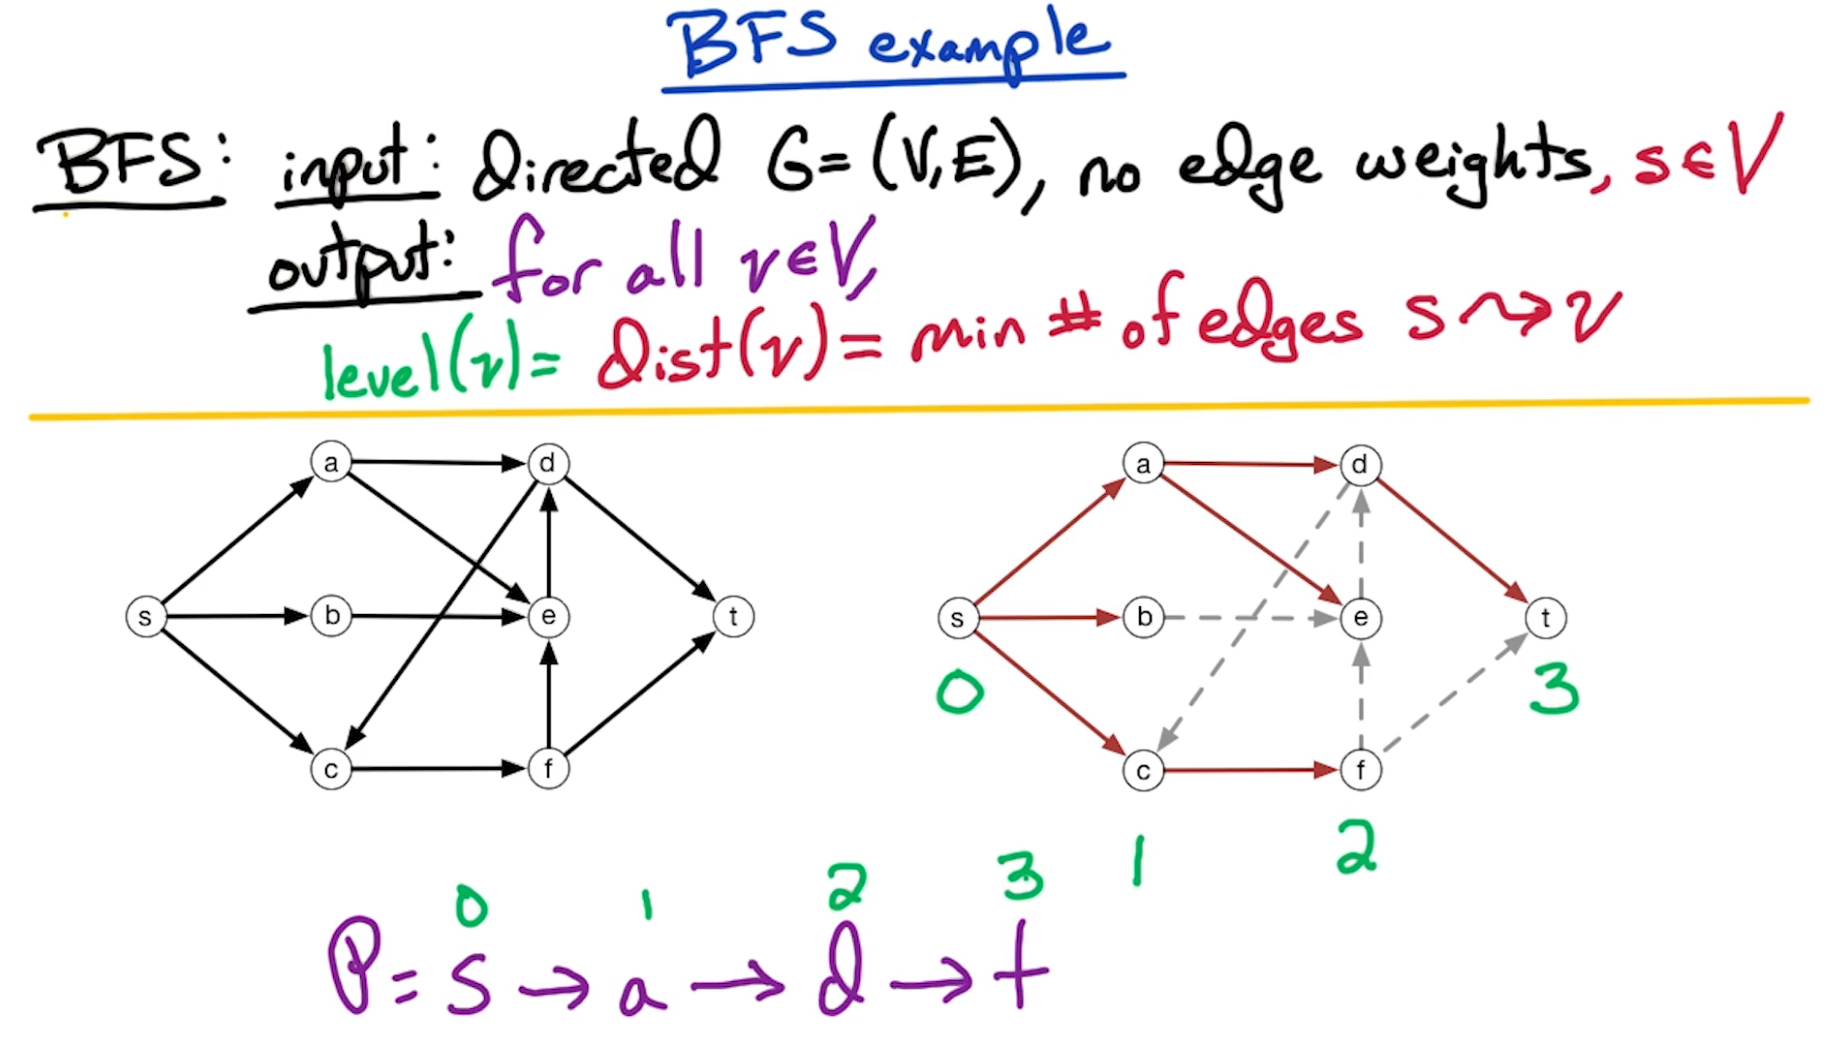 BFS example
BFS: input: directed G=(V,E), no edge weights, s∈V
output: for all v∈V,
level(v)= dist(v)= min # of edges s⇝v
a d a d
s b e t s b e t
0 3
c f c f
1 2
0 1 2 3
P= s → a → d → t